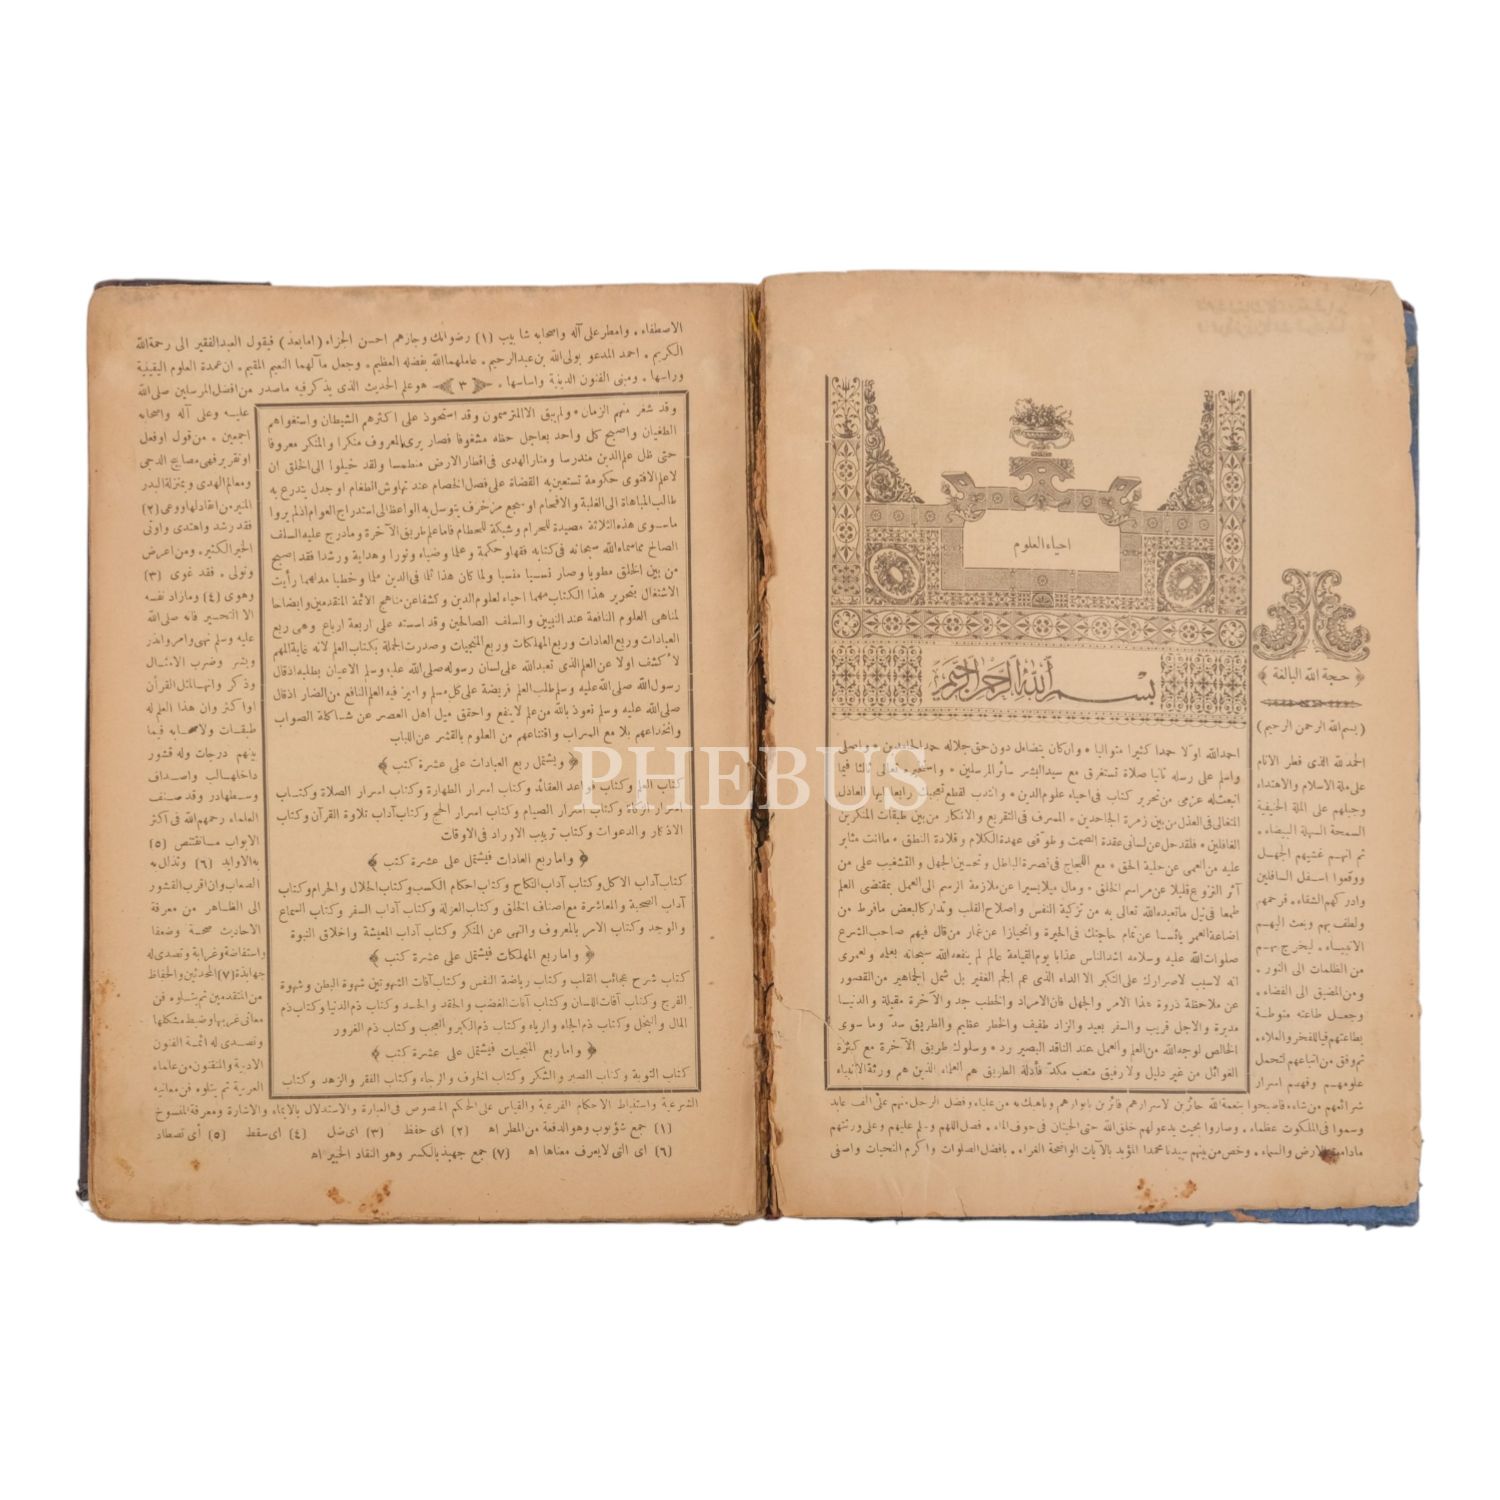 احياء العلوم
بسم الله الرحمن الرحيم
احمد الله اولا حمدا كثيرا متواليا * وان كان يتضاءل دون حق جلاله حمد الحامدين * واصلى
واسلم على رسله ثانيا صلاة تستغرق مع سيد البشر سائر المرسلين * واستخيره تعالى ثالثا فيما
انبعث له عزمى من تحرير كتاب فى احياء علوم الدين * وانتدب لقطع تعجبك رابعا ايها العاذل
المتغالى فى العذل من بين زمرة الجاحدين * المسرف فى التقريع والانكار من بين طبقات المنكرين
الغافلين * فلقد حل عن لسانى عقدة الصمت وطوقنى عهدة الكلام وقلادة النطق * ما انت مثابر
عليه من العمى عن جلية الحق * مع اللجاج فى نصرة الباطل وتحسين الجهل والتشغيب على من
آثر النزوع قليلا عن مراسم الخلق * ومال ميلا يسيرا عن ملازمة الرسم الى العمل بمقتضى العلم
طمعا فى نيل ما تعبده الله تعالى به من تزكية النفس واصلاح القلب وتداركا لبعض ما فرط من
اضاعة العمر يائسا عن تمام حاجتك فى الحيرة وانحيازا عن غمار من قال فيهم صاحب الشرع
صلوات الله عليه وسلامه اشد الناس عذابا يوم القيامة عالم لم ينفعه الله سبحانه بعلمه ولعمرى
انه لاسبب لاصرارك على التكبر الا الداء الذى عم الجم الغفير بل شمل الجماهير من القصور
عن ملاحظة ذروة هذا الامر والجهل فان الامر اد والخطب جد والآخرة مقبلة والدنيا
مدبرة والاجل قريب والسفر بعيد والزاد طفيف والخطر عظيم والطريق سد وما سوى
الخالص لوجه الله من العلم والعمل عند الناقد البصير رد * وسلوك طريق الآخرة مع كثرة
الغوائل من غير دليل ولا رفيق متعب مكد فأدلة الطريق هم العلماء الذين هم ورثة الانبياء
حجة الله البالغة
(بسم الله الرحمن الرحيم)
الحمد لله الذى فطر الانام
على ملة الاسلام والاهتداء
وجبلهم على الملة الحنيفية
السمحة السهلة البيضاء.
ثم انهم غشيهم الجهل
ووقعوا اسفل السافلين
وادركهم الشقاء. فرحمهم
ولطف بهم وبعث اليهم
الانبياء. ليخرج بهم
من الظلمات الى النور.
ومن المضيق الى الفضاء.
وجعل طاعته منوطة
بطاعتهم فيا للفخر والعلاء.
ثم وفق من اتباعهم لتحمل
علومهم وفهم اسرار
شرائعهم من شاء. فاصبحوا بنعمة الله حائزين لاسرارهم فائزين بانوارهم وناهيك به من علياء وفضل الرجل منهم على الف عابد
وسموا فى الملكوت عظماء. وصاروا بحيث يدعو لهم خلق الله حتى الحيتان فى جوف الماء. فصل اللهم وسلم عليهم وعلى ورثتهم
مادامت الارض والسماء. وخص من بينهم سيدنا محمدا المؤيد بالآيات الواضحة الغراء. بافضل الصلوات واكرم التحيات واصفى
الاصطفاء. وامطر على آله واصحابه شآبيب (١) رضوانك وجازهم احسن الجزاء (اما بعد) فيقول العبد الفقير الى رحمة الله
الكريم. احمد المدعو بولى الله بن عبد الرحيم. عاملهما الله بفضله العظيم. وجعل مآلهما النعيم المقيم. ان عمدة العلوم اليقينية
ورأسها. ومبنى الفنون الدينية واساسها. ٣ هو علم الحديث الذى يذكر فيه ما صدر من افضل المرسلين صلى الله
وقد شغر منهم الزمان * ولم يبق الا المترسمون وقد استحوذ على اكثرهم الشيطان واستغواهم
الطغيان واصبح كل واحد بعاجل حظه مشغوفا فصار يرى المعروف منكرا والمنكر معروفا
حتى ظل علم الدين مندرسا ومنار الهدى فى اقطار الارض منطمسا ولقد خيلوا الى الخلق ان
لا علم الا فتوى حكومة تستعين به القضاة على فصل الخصام عند تهاوش الطغام او جدل يتدرع به
طالب المباهاة الى الغلبة والافحام او سجع مزخرف يتوسل به الواعظ الى استدراج العوام اذ لم يروا
ما سوى هذه الثلاثة مصيدة للحرام وشبكة للحطام فاما علم طريق الآخرة وما درج عليه السلف
الصالح مما سماه الله سبحانه فى كتابه فقها وحكمة وعلما وضياء ونورا وهداية ورشدا فقد اصبح
من بين الخلق مطويا وصار نسيا منسيا ولما كان هذا ثلما فى الدين ملما وخطبا مدلهما رأيت
الاشتغال بتحرير هذا الكتاب مهما احياء لعلوم الدين وكشفا عن مناهج الائمة المتقدمين وايضاحا
لمناهى العلوم النافعة عند النبيين والسلف الصالحين وقد اسسته على اربعة ارباع وهى ربع
العبادات وربع العادات وربع المهلكات وربع المنجيات وصدرت الجملة بكتاب العلم لانه غاية المهم
لاكشف اولا عن العلم الذى تعبد الله على لسان رسوله صلى الله عليه وسلم الاعيان بطلبه اذ قال
رسول الله صلى الله عليه وسلم طلب العلم فريضة على كل مسلم واميز فيه العلم النافع من الضار اذ قال
صلى الله عليه وسلم نعوذ بالله من علم لا ينفع واحقق ميل اهل العصر عن شاكلة الصواب
وانخداعهم بلامع السراب واقتناعهم من العلوم بالقشر عن اللباب
﴿ ويشتمل ربع العبادات على عشرة كتب ﴾
كتاب العلم وكتاب قواعد العقائد وكتاب اسرار الطهارة وكتاب اسرار الصلاة وكتاب
اسرار الزكاة وكتاب اسرار الصيام وكتاب اسرار الحج وكتاب آداب تلاوة القرآن وكتاب
الاذكار والدعوات وكتاب ترتيب الاوراد فى الاوقات
﴿ واما ربع العادات فيشتمل على عشرة كتب ﴾
كتاب آداب الاكل وكتاب آداب النكاح وكتاب احكام الكسب وكتاب الحلال والحرام وكتاب
آداب الصحبة والمعاشرة مع اصناف الخلق وكتاب العزلة وكتاب آداب السفر وكتاب السماع
والوجد وكتاب الامر بالمعروف والنهى عن المنكر وكتاب آداب المعيشة واخلاق النبوة
﴿ واما ربع المهلكات فيشتمل على عشرة كتب ﴾
كتاب شرح عجائب القلب وكتاب رياضة النفس وكتاب آفات الشهوتين شهوة البطن وشهوة
الفرج وكتاب آفات اللسان وكتاب آفات الغضب والحقد والحسد وكتاب ذم الدنيا وكتاب ذم
المال والبخل وكتاب ذم الجاه والرياء وكتاب ذم الكبر والعجب وكتاب ذم الغرور
﴿ واما ربع المنجيات فيشتمل على عشرة كتب ﴾
كتاب التوبة وكتاب الصبر والشكر وكتاب الخوف والرجاء وكتاب الفقر والزهد وكتاب
عليه وعلى آله واصحابه
اجمعين. من قول او فعل
او تقرير فهى مصابيح الدجى
ومعالم الهدى وبمنزلة البدر
المنير من انقاد لها ووعى (٢)
فقد رشد واهتدى واوتى
الخير الكثير. ومن اعرض
وتولى. فقد غوى (٣)
وهوى (٤) وما زاد نفسه
الا التخسير فانه صلى الله
عليه وسلم نهى وامر وانذر
وبشر وضرب الامثال
وذكر وانها لمثل القرآن
او اكثر وان هذا العلم له
طبقات ولاصحابه فيما
بينهم درجات وله قشور
داخلها لب واصداف
وسطها در وقد صنف
العلماء رحمهم الله فى اكثر
الابواب ما تقتنص (٥)
به الاوابد (٦) وتذلل به
الصعاب وان اقرب القشور
الى الظاهر فن معرفة
الاحاديث صحة وضعفا
واستفاضة وغرابة وتصدى له
جهابذة (٧) المحدثين والحفاظ
من المتقدمين ثم يتلوه فن
معانى غريبها وضبط مشكلها
وتصدى له ائمة الفنون
الادبية والمتقنون من علماء
العربية ثم يتلوه فن معانيه
الشرعية واستنباط الاحكام الفرعية والقياس على الحكم المنصوص فى العبارة والاستدلال بالايماء والاشارة ومعرفة المنسوخ
(١) جمع شؤبوب وهو الدفعة من المطر اه (٢) اى حفظ (٣) اى ضل (٤) اى سقط (٥) أى تصطاد
(٦) اى التى لا يعرف معناها اه (٧) جمع جهبذ بالكسر وهو النقاد الخبير اه
PHEBUS